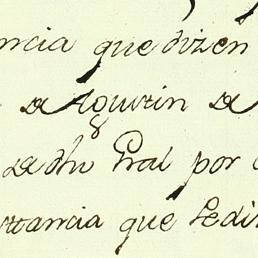 ncia que dizen
de Agustin de
de dho Gral por
rttancia que se di